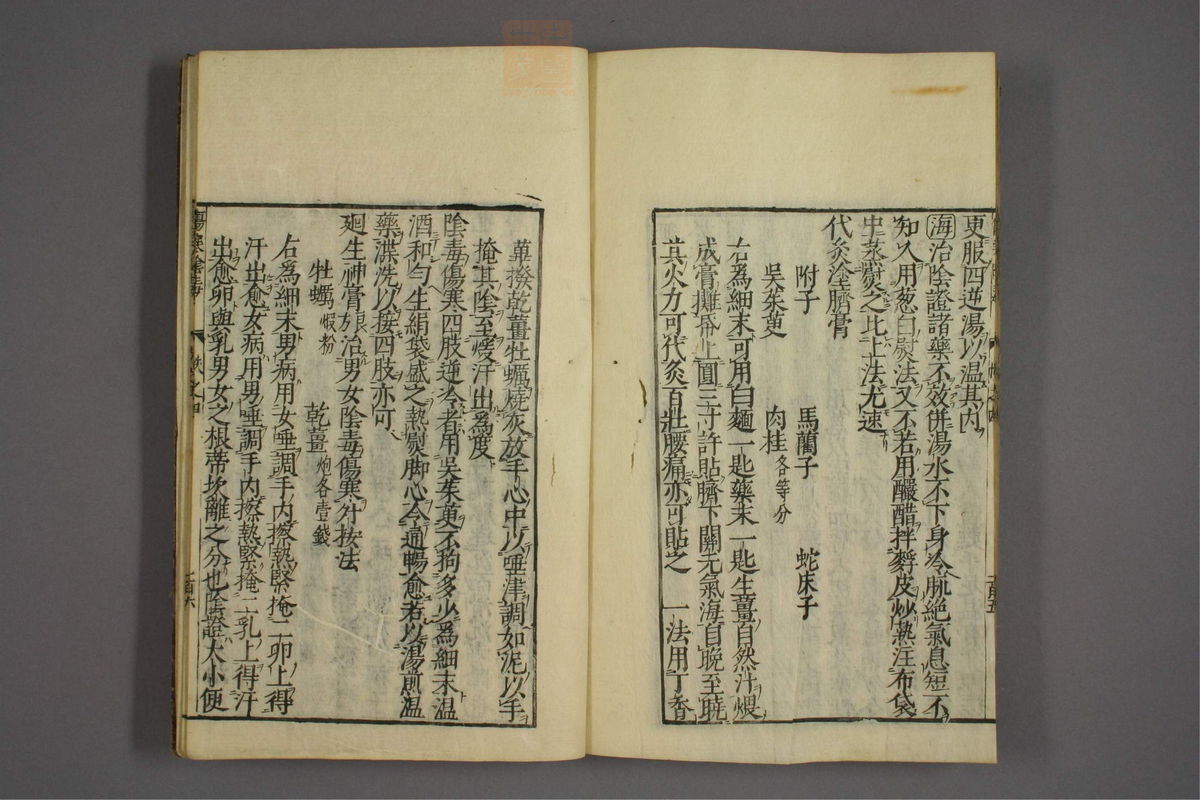 更服四逆湯以温其内
海治陰證諸藥不效併湯水不下身冷脉絶氣息短不
知人用葱白熨法又不若用釅醋拌麩皮炒熱注布袋
中蒸熨之比上法尤速
代灸塗臍膏
附子 馬藺子 蛇床子
吳茱萸 肉桂各等分
右爲細末可用白麵一匙藥末一匙生薑自然汁煨
成膏攤帋上圓三寸許貼臍下關元氣海自晚至曉
其火力可代灸百壯腰痛亦可貼之 一法用丁香
一百五
蓽撥乾薑牡蠣燒灰放手心中以唾津調如泥以手
掩其陰至煖汗出爲度
陰毒傷寒四肢逆冷者用吳茱萸不狗多少爲細末温
酒和勻生絹袋盛之熱熨脚心令通暢愈若以湯煎温
藥渫洗以按四肢亦可
廻生神膏方良治男女陰毒傷寒外按法
牡蠣煆粉 乾薑炮各壹錢
右爲細末男病用女唾調手内擦熱緊掩二卵上得
汗出愈女病用男唾調手内擦熱緊掩二乳上得汗
出愈卵與乳男女之根蒂坎離之分也陰證大小便
傷寒陰毒 一百六